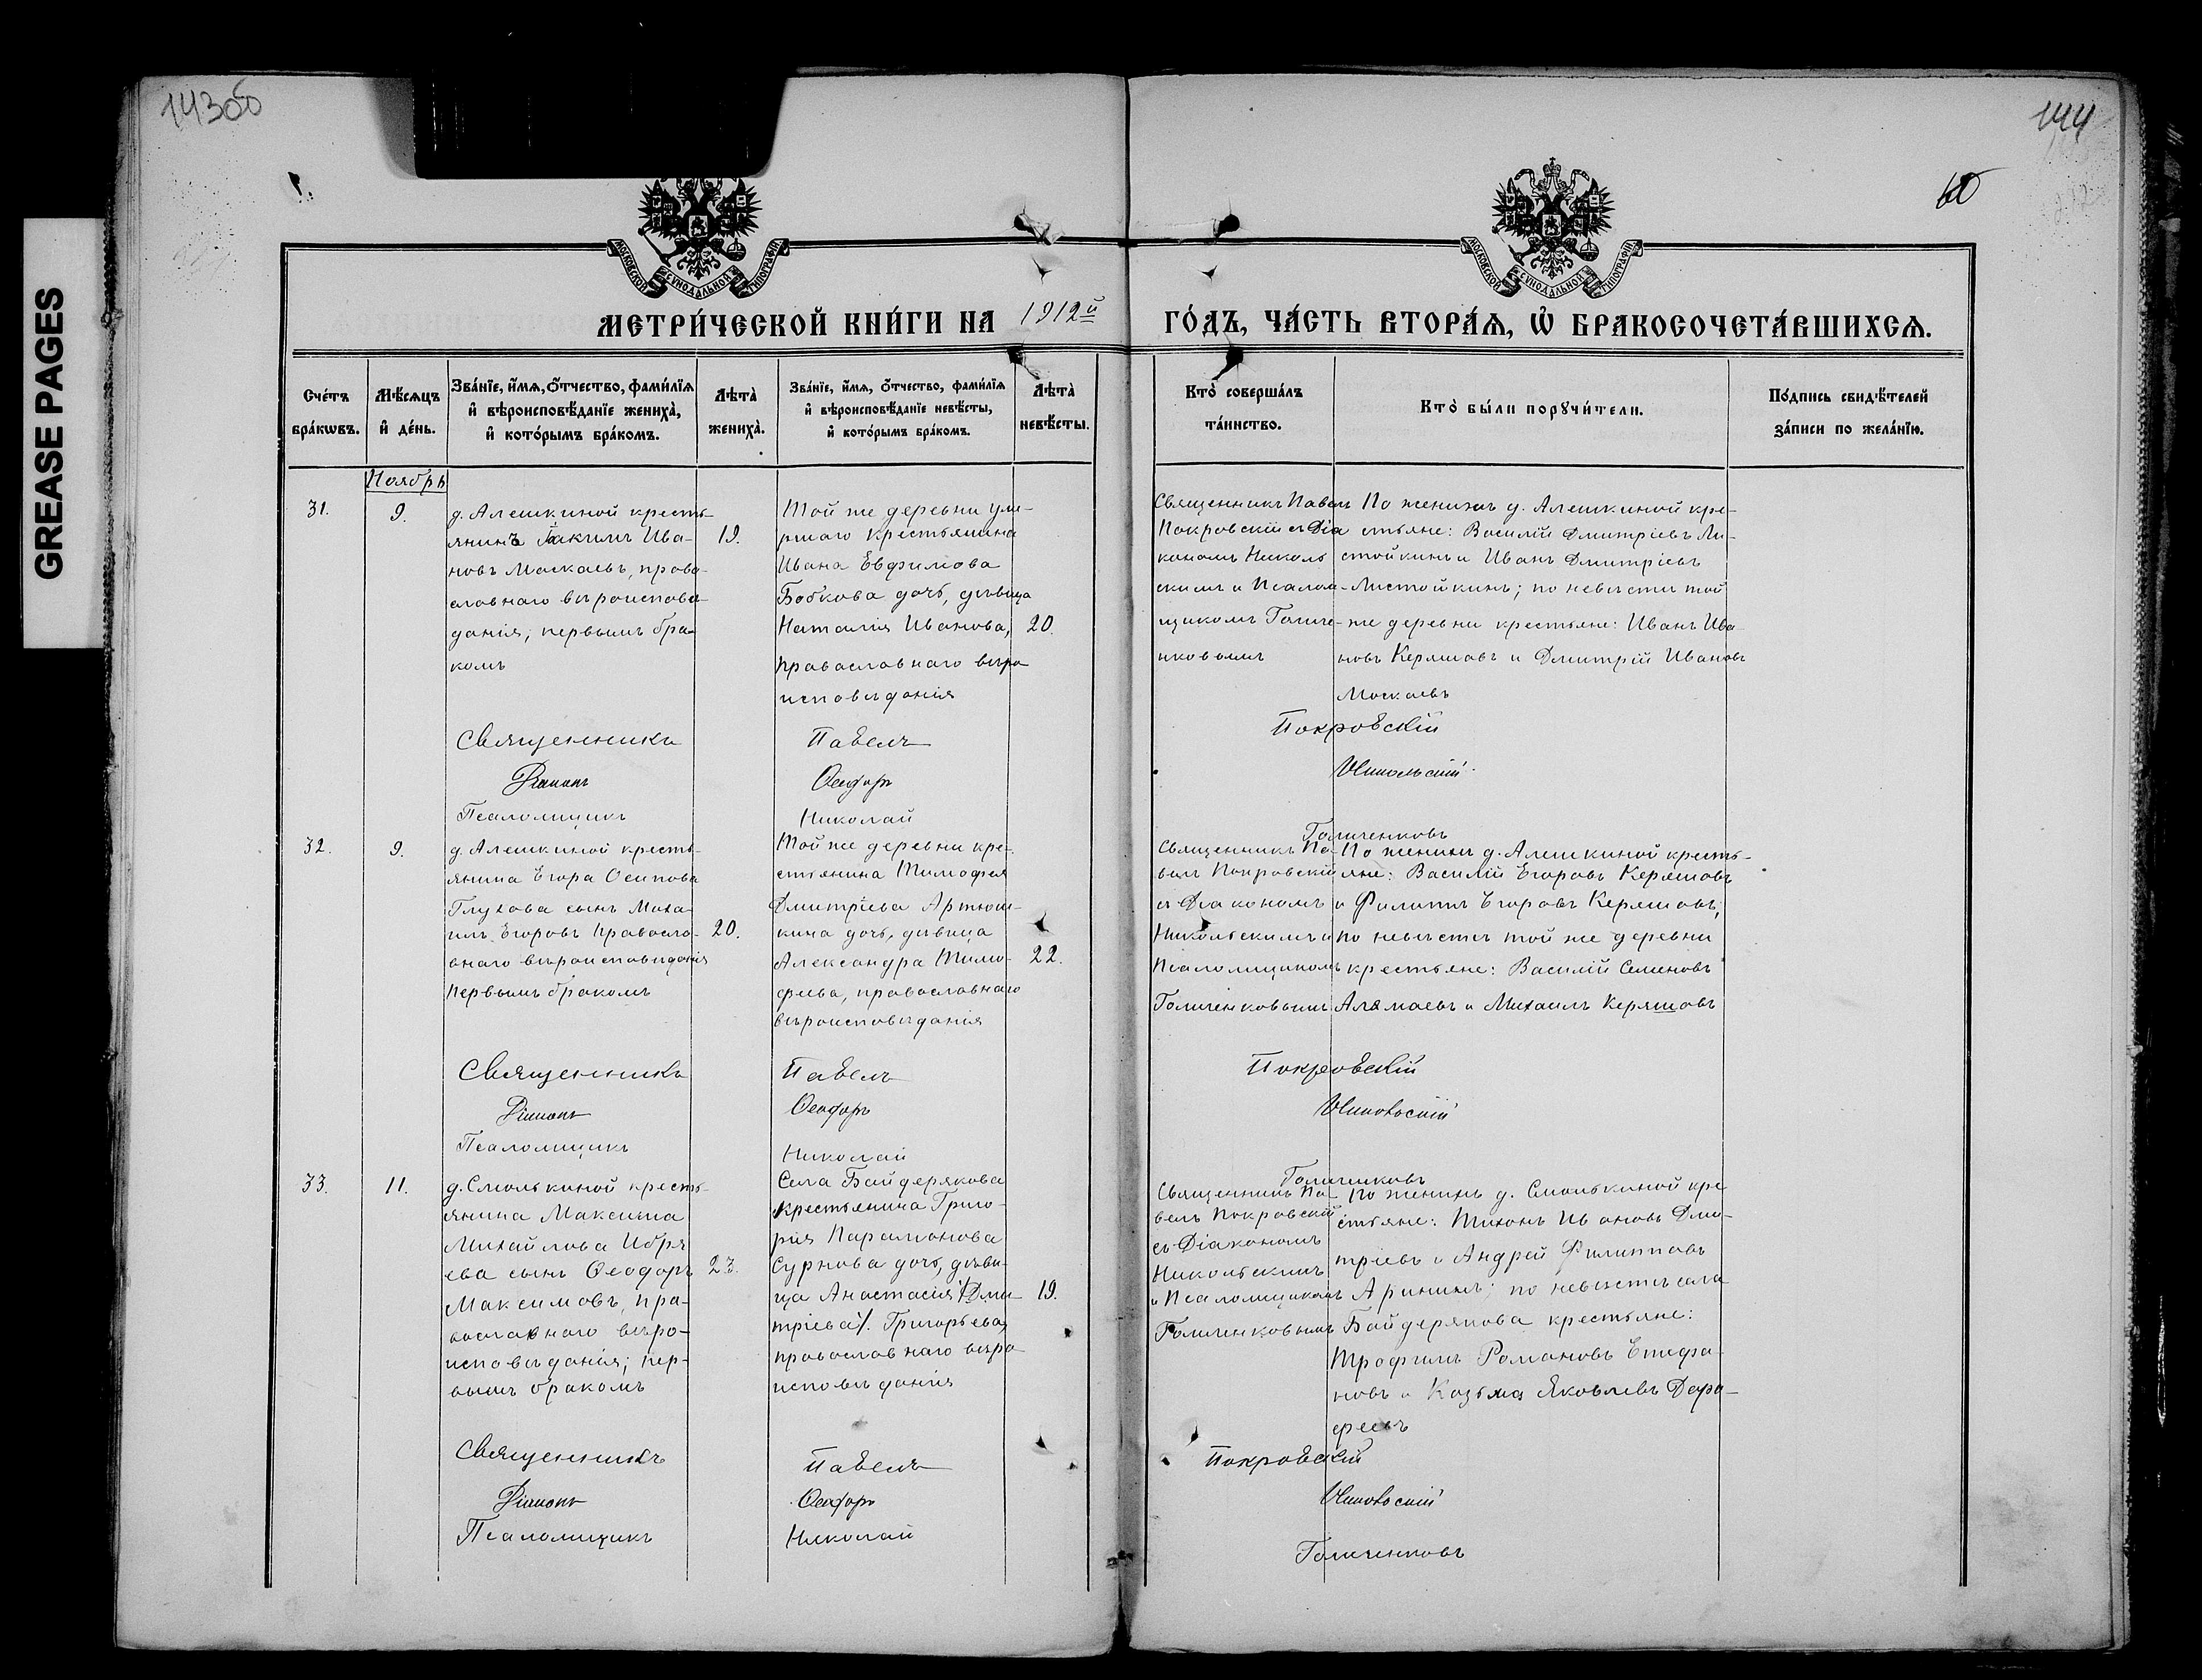 GREASE PAGES
143об
144
60
МОСКОВСКОЙ СѴНОДАЛЬНОЙ ТИПОГРАФІИ
МОСКОВСКОЙ СѴНОДАЛЬНОЙ ТИПОГРАФІИ
МЕТРИ́ЧЕСКОЙ КНИ́ГИ НА 1912й ГО́ДЪ, ЧА́СТЬ ВТОРА́Ѧ, Ѡ҆ БРАКОСОЧЕТА́ВШИХСѦ.
Сче́тъ бра́кѡвъ.
Мѣ́сѧцъ и҆ де́нь.
Зва́нїе, и҆́мѧ, ѻ҆́тчество, фами́лїѧ
и҆ вѣроисповѣ́данїе жениха̀,
и҆ кото́рымъ бра́комъ.
Лѣта̀ жениха̀.
Зва́нїе, и҆́мѧ, ѻ҆́тчество, фами́лїѧ
и҆ вѣроисповѣ́данїе невѣ́сты,
и҆ кото́рымъ бра́комъ.
Лѣта̀ невѣ́сты.
Кто̀ соверша́лъ та́инство.
Кто̀ бы́ли порꙋчи́тели.
По́дпись свидѣ́телей
за́писи по жела́нїю.
Ноябрь
31.
9.
д. Алешкиной кресть-
янинъ Іакимъ Ива-
новъ Маскаевъ, право-
славнаго вѣроиспове-
данія, первымъ бра-
комъ
19.
Той же деревни уме-
ршаго крестьянина
Ивана Евфимова
Бобкова дочь, дѣвица
Наталія Иванова,
православнаго вѣро-
исповѣданія
20.
Священникъ Павелъ
Покровскій съ Діа
кономъ Николь
скимъ и Псалом-
щикомъ Голиче-
нковымъ
По женихѣ д. Алешкиной кре-
стьяне: Василій Дмитріевъ Ли-
стойкинъ и Иванъ Дмитріевъ
Листойкинъ; по невѣстѣ той
же деревни крестьяне: Иванъ Ива
новъ Керяшовъ и Дмитрій Ивановъ
Маскаевъ
Священникъ Павелъ Покровскій
Діаконъ Ѳеодоръ Никольскій
Псаломщикъ Николай Голиченковъ
32.
9.
д. Алешкиной кресть-
янина Егора Осипова
Глухова сынъ Миха-
илъ Егоровъ правосла-
внаго вѣроисповѣданія
первымъ бракомъ
20.
Той же деревни кре-
стьянина Тимофея
Дмитріева Артюш-
кина дочь, дѣвица
Александра Тимо-
феева, православнаго
вѣроисповѣданія
22.
Священникъ Па-
велъ Покровскій
съ Діакономъ
Никольскимъ и
Псаломщикомъ
Голиченковымъ
По женихѣ д. Алешкиной кресть-
яне: Василій Егоровъ Керяшовъ
и Филиппъ Егоровъ Керяшовъ;
по невѣстѣ той же деревни
крестьяне: Василій Семеновъ
Алямаевъ и Михаилъ Керяшовъ
Священникъ Павелъ Покровскій
Діаконъ Ѳеодоръ Никольскій
Псаломщикъ Николай Голиченковъ
33.
11.
д. Смолькиной кресть-
янина Максима
Михайлова Ибря
ева сынъ Ѳеодоръ
Максимовъ, пра-
вославнаго вѣро-
исповѣданія; пер-
вымъ бракомъ
23.
Села Байдерякова
крестьянина Григо-
рія Парамонова
Сурнова дочь, дѣви-
ца Анастасія /Дми-
тріева/. Григорьева,
православнаго вѣро
исповѣданія
19.
Священникъ Па-
велъ Покровскій
съ Діакономъ
Никольскимъ
и Псаломщикомъ
Голиченковымъ
По женихѣ д. Смолькиной кре
стьяне: Тихонъ Ивановъ Дми-
тріевъ и Андрей Филипповъ
Арининъ; по невѣстѣ села
Байдерякова крестьяне:
Трофимъ Романовъ Епифа-
новъ и Козьма Яковлевъ Доро-
феевъ
Священникъ Павелъ Покровскій
Діаконъ Ѳеодоръ Никольскій
Псаломщикъ Николай Голиченковъ